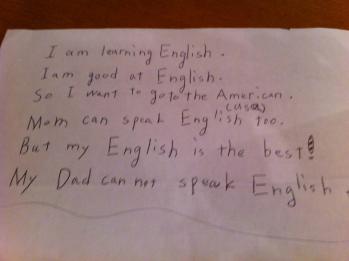 I am learning English.
I am good at English.
So I want to go to the American.
(USA)
Mom can speak English too.
But my English is the best!
My Dad can not speak English.